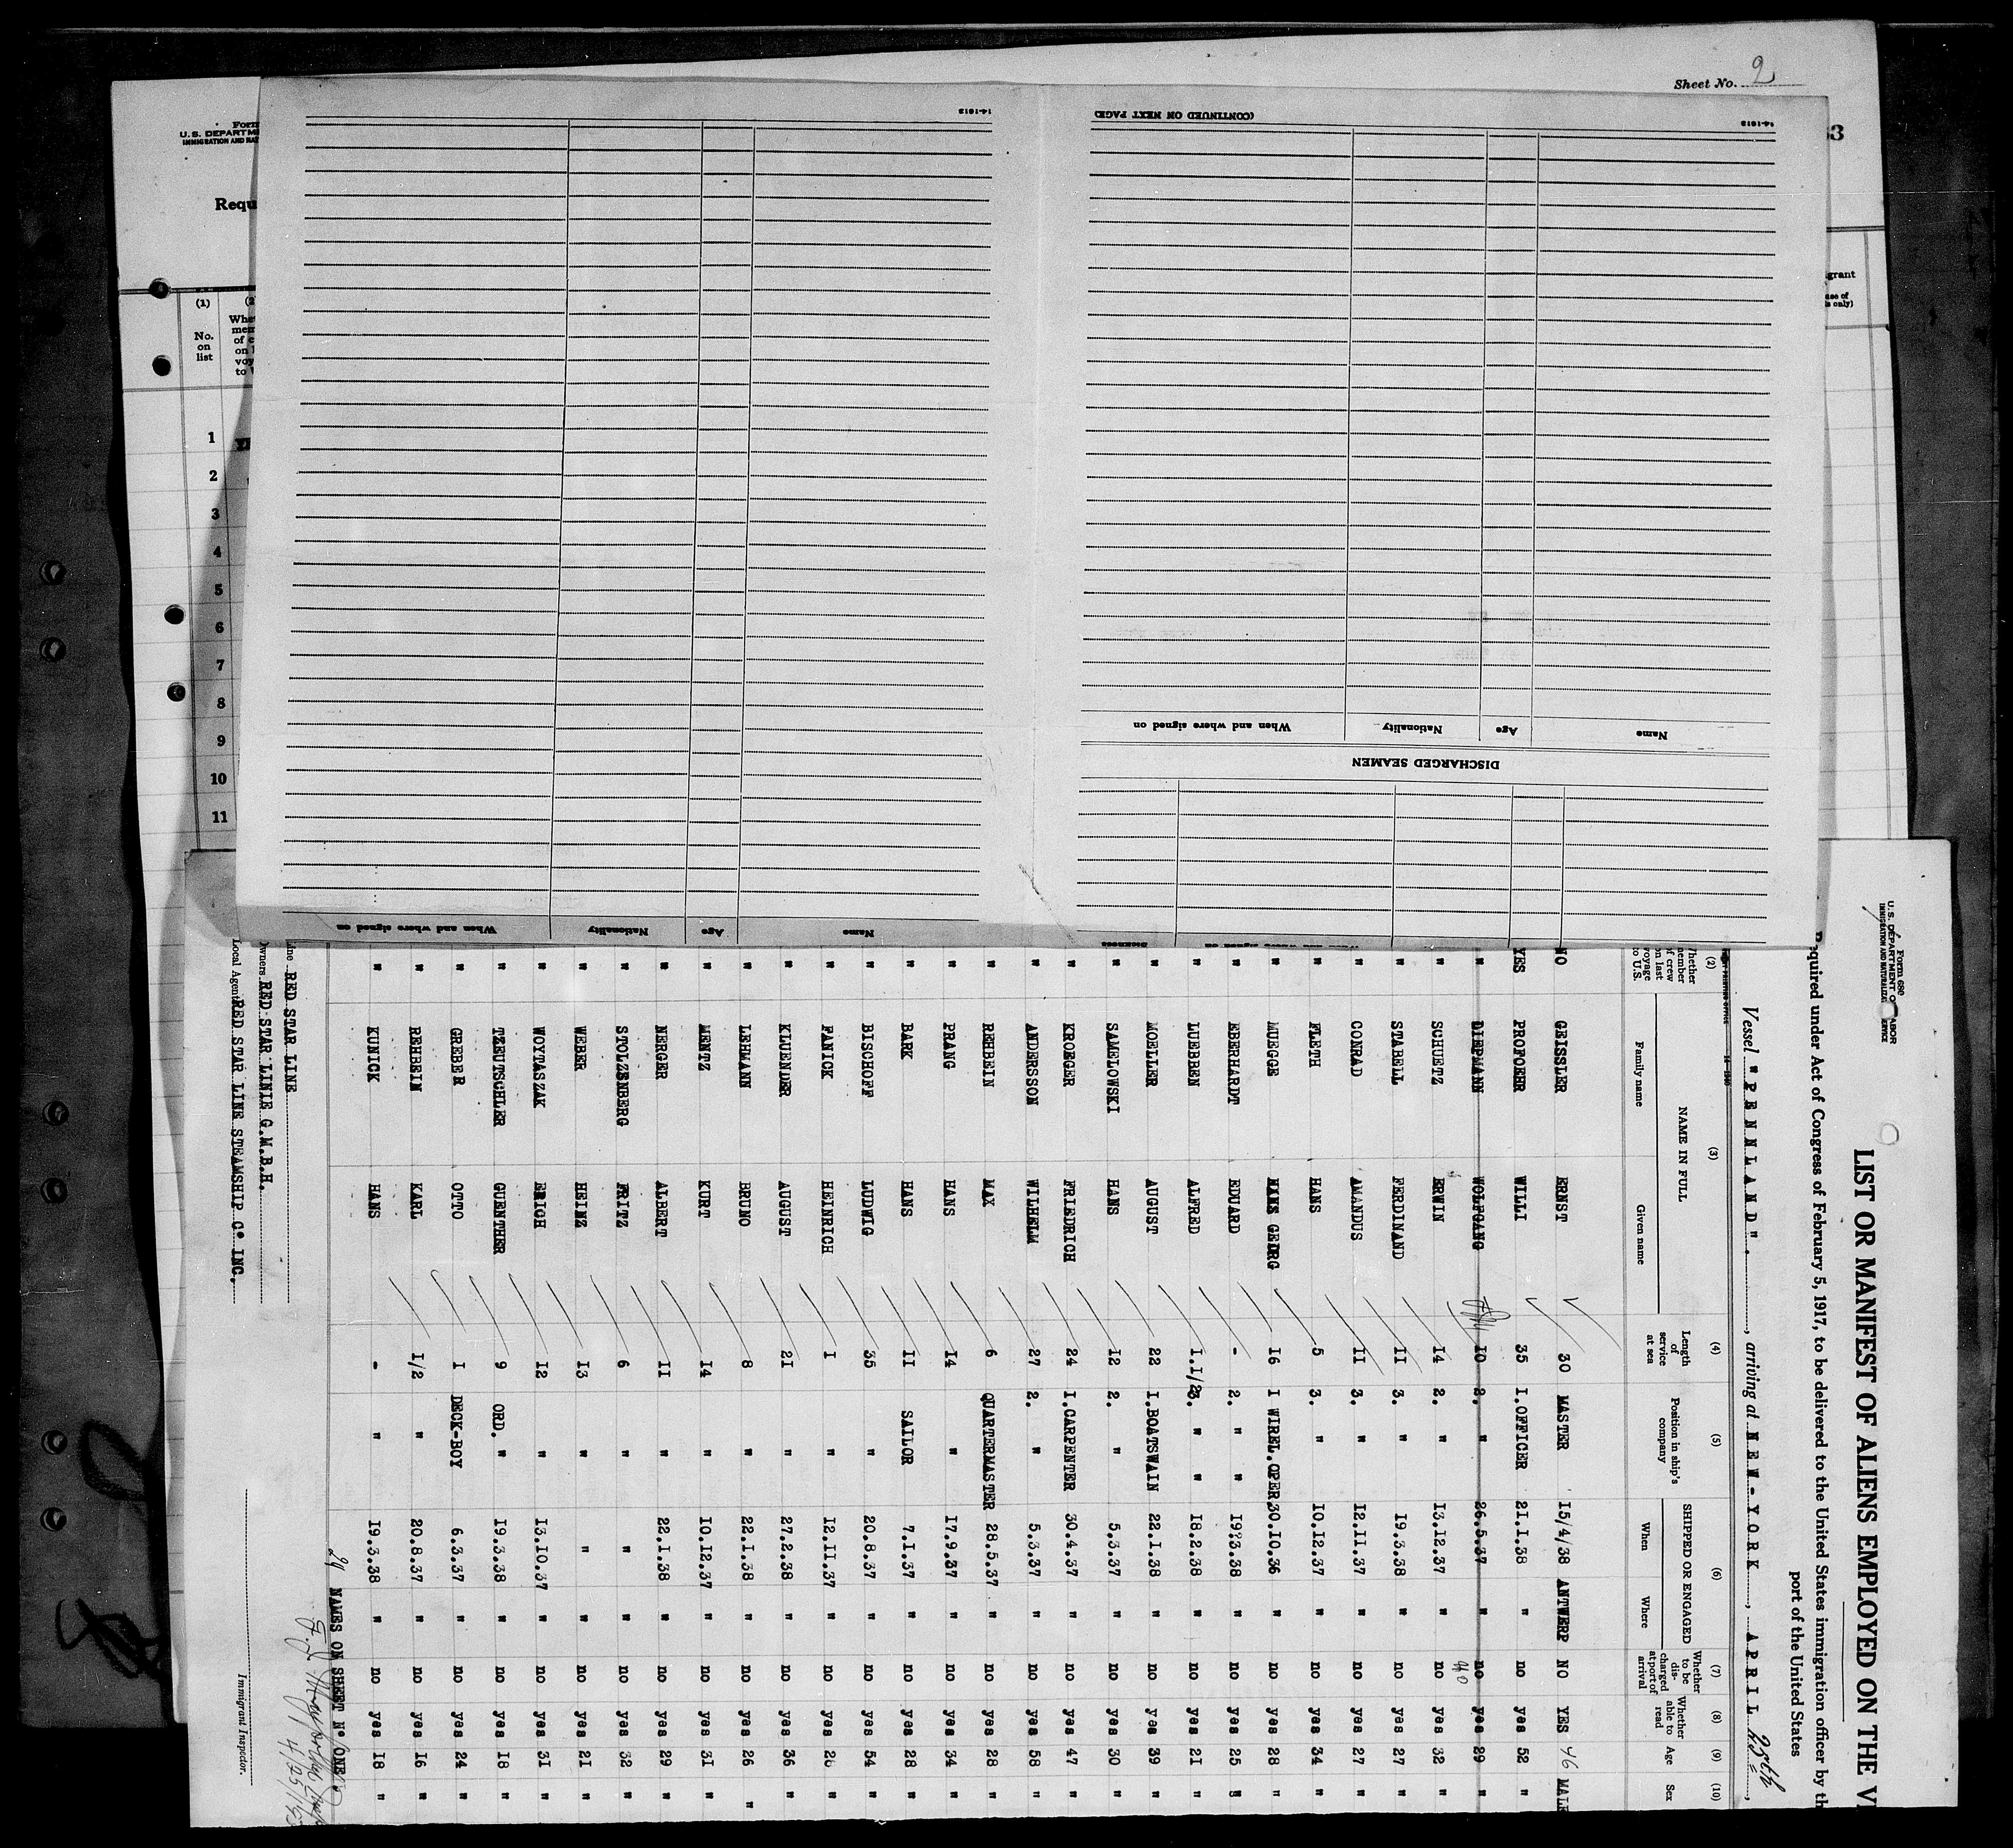 Sheet No. 2
53
Form
U.S. DEPARTME
IMMIGRATION AND NAT
Requ
(1)
No. on list
Whe
mem
of c
on l
voy
to U
grant
ase of
s only)
1
2
3
4
5
6
7
8
9
10
11
14-1613
(CONTINUED ON NEXT PAGE)
14-1613
DISCHARGED SEAMEN
Name Age Nationality When and where signed on
Name Age Nationality When and where signed on
Sickness
When and where signed on
Form 680
U.S. DEPARTMENT O LABOR
IMMIGRATION AND NATURALIZAT SERVICE
LIST OR MANIFEST OF ALIENS EMPLOYED ON THE V
Required under Act of Congress of February 5, 1917, to be delivered to the United States immigration officer by th
port of the United States
Vessel "PENNLAND"., arriving at NEW-YORK, APRIL 25th,
(2) Whether member of crew on last voyage to U.S.
(3) NAME IN FULL Family name Given name
(4) Length of service at sea
(5) Position in ship's company
(6) SHIPPED OR ENGAGED When Where
(7) Whether to be discharged at port of arrival
(8) Whether able to read
(9) Age
(10) Sex
NO GEISSLER ERNST 30 MASTER 15/4/38 ANTWERP NO YES 46 MALE
YES PROFOEHR WILLI 35 I.OFFICER 21.1.38 " no yes 52 "
" DIEPMANN WOLFGANG 10 2. " 26.5.37 " no yes 29 "
" SCHUETZ ERWIN 14 2. " 13.12.37 " no yes 32 "
" STABELL FERDINAND 11 3. " 19.3.38 " no yes 27 "
" CONRAD AMANDUS 11 3. " 12.11.37 " no yes 27 "
" FLETH HANS 5 3. " 10.12.37 " no yes 34 "
" MUEGGE HANS GEORG 16 I WIREL.OPER 30.10.36 " no yes 28 "
" EBERHARDT EDUARD - 2. " " 19?3.38 " no yes 25 "
" LUEBBEN ALFRED 1.1/2 3. " " 18.2.38 " no yes 21 "
" MOELLER AUGUST 22 I.BOATSWAIN 22.1.38 " no yes 39 "
" SAMELOWSKI HANS 12 2. " 5.3.37 " no yes 30 "
" KROEGER FRIEDRICH 24 I.CARPENTER 30.4.37 " no yes 47 "
" ANDERSSON WILHELM 27 2. " 5.3.37 " no yes 58 "
" REHBEIN MAX 6 QUARTERMASTER 28.5.37 " no yes 28 "
" PRANG HANS 14 " 17.9.37 " no yes 34 "
" BARK HANS 11 SAILOR 7.1.37 " no yes 28 "
" BISCHOFF LUDWIG 35 " 20.8.37 " no yes 54 "
" FANICK HEINRICH 1 " 12.11.37 " no yes "
" KLUENDER AUGUST 21 " 27.2.38 " no yes 36 "
" LEHMANN BRUNO 8 " 22.1.38 " no yes 26 "
" MENTZ KURT 14 " 10.12.37 " no yes 31 "
" NERGER ALBERT 11 " 22.1.38 " no yes 29 "
" STOLZENBERG FRITZ 6 " " " no yes 32 "
" WEBER HEINZ 13 " " " no yes 21 "
" WOYTASZAK ERICH 12 " 13.10.37 " no yes 31 "
" TZEUTSCHLER GUENTHER 9 ORD. " 19.3.38 " no yes 18 "
" GREBER OTTO 1 DECK-BOY 6.3.37 " no yes 24 "
" REHBEIN KARL 1/2 " 20.8.37 " no yes 16 "
" KUNICK HANS - " 19.3.38 " no yes 18 "
29 NAMES ON SHEET No ONE
Line RED STAR LINE
Owners RED STAR LINIE G.M.B.H.
Local Agents RED STAR LINE STEAMSHIP Co INC.
Immigrant Inspector.